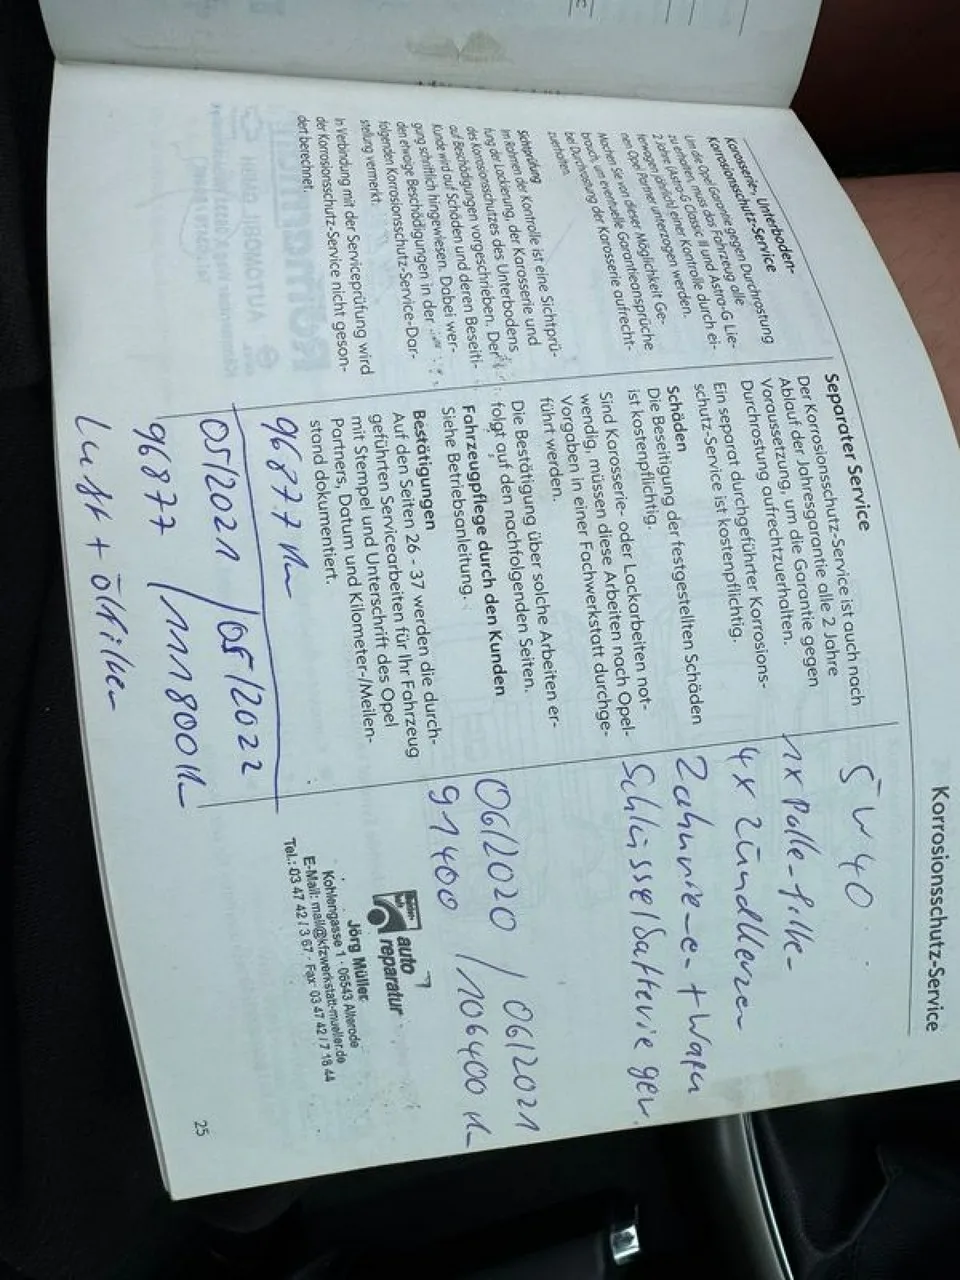 Korrosionsschutz-Service
Karosserie-, Unterboden-
Korrosionsschutz-Service
Um die Opel Garantie gegen Durchrostung
zu erhalten, muss das Fahrzeug alle
2 Jahre (Astra-G Classic II und Astra-G Lie-
ferwagen jährlich) einer Kontrolle durch ei-
nen Opel Partner unterzogen werden.
Machen Sie von dieser Möglichkeit Ge-
brauch, um eventuelle Garantieansprüche
bei Durchrostung der Karosserie aufrecht-
zuerhalten.
Sichtprüfung
Im Rahmen der Kontrolle ist eine Sichtprü-
fung der Lackierung, der Karosserie und
des Korrosionsschutzes des Unterbodens
auf Beschädigungen vorgeschrieben. Der
Kunde wird auf Schäden und deren Beseiti-
gung schriftlich hingewiesen. Dabei wer-
den etwaige Beschädigungen in der
folgenden Korrosionsschutz-Service-Dar-
stellung vermerkt.
In Verbindung mit der Serviceprüfung wird
der Korrosionsschutz-Service nicht geson-
dert berechnet.
Separater Service
Der Korrosionsschutz-Service ist auch nach
Ablauf der Jahresgarantie alle 2 Jahre
Voraussetzung, um die Garantie gegen
Durchrostung aufrechtzuerhalten.
Ein separat durchgeführter Korrosions-
schutz-Service ist kostenpflichtig.
Schäden
Die Beseitigung der festgestellten Schäden
ist kostenpflichtig.
Sind Karosserie- oder Lackarbeiten not-
wendig, müssen diese Arbeiten nach Opel-
Vorgaben in einer Fachwerkstatt durchge-
führt werden.
Die Bestätigung über solche Arbeiten er-
folgt auf den nachfolgenden Seiten.
Fahrzeugpflege durch den Kunden
Siehe Betriebsanleitung.
Bestätigungen
Auf den Seiten 26 - 37 werden die durch-
geführten Servicearbeiten für Ihr Fahrzeug
mit Stempel und Unterschrift des Opel
Partners, Datum und Kilometer-/Meilen-
stand dokumentiert.
96877 km
05/2021 / 05/2022
96877 / 111800 km
Luft + Ölfilter
5W40
1x Polle-filte-
4x Zündkerzen
Zahnrie-e- + Wapu
Schlüsselbatterie gew.
06/2020 / 06/2021
91400 / 106400 km
auto
reparatur
Jörg Müller
Kohlengasse 1 · 06543 Alterode
E-Mail: mail@kfzwerkstatt-mueller.de
Tel.: 03 47 42 / 3 67 · Fax 03 47 42 / 7 18 44
25